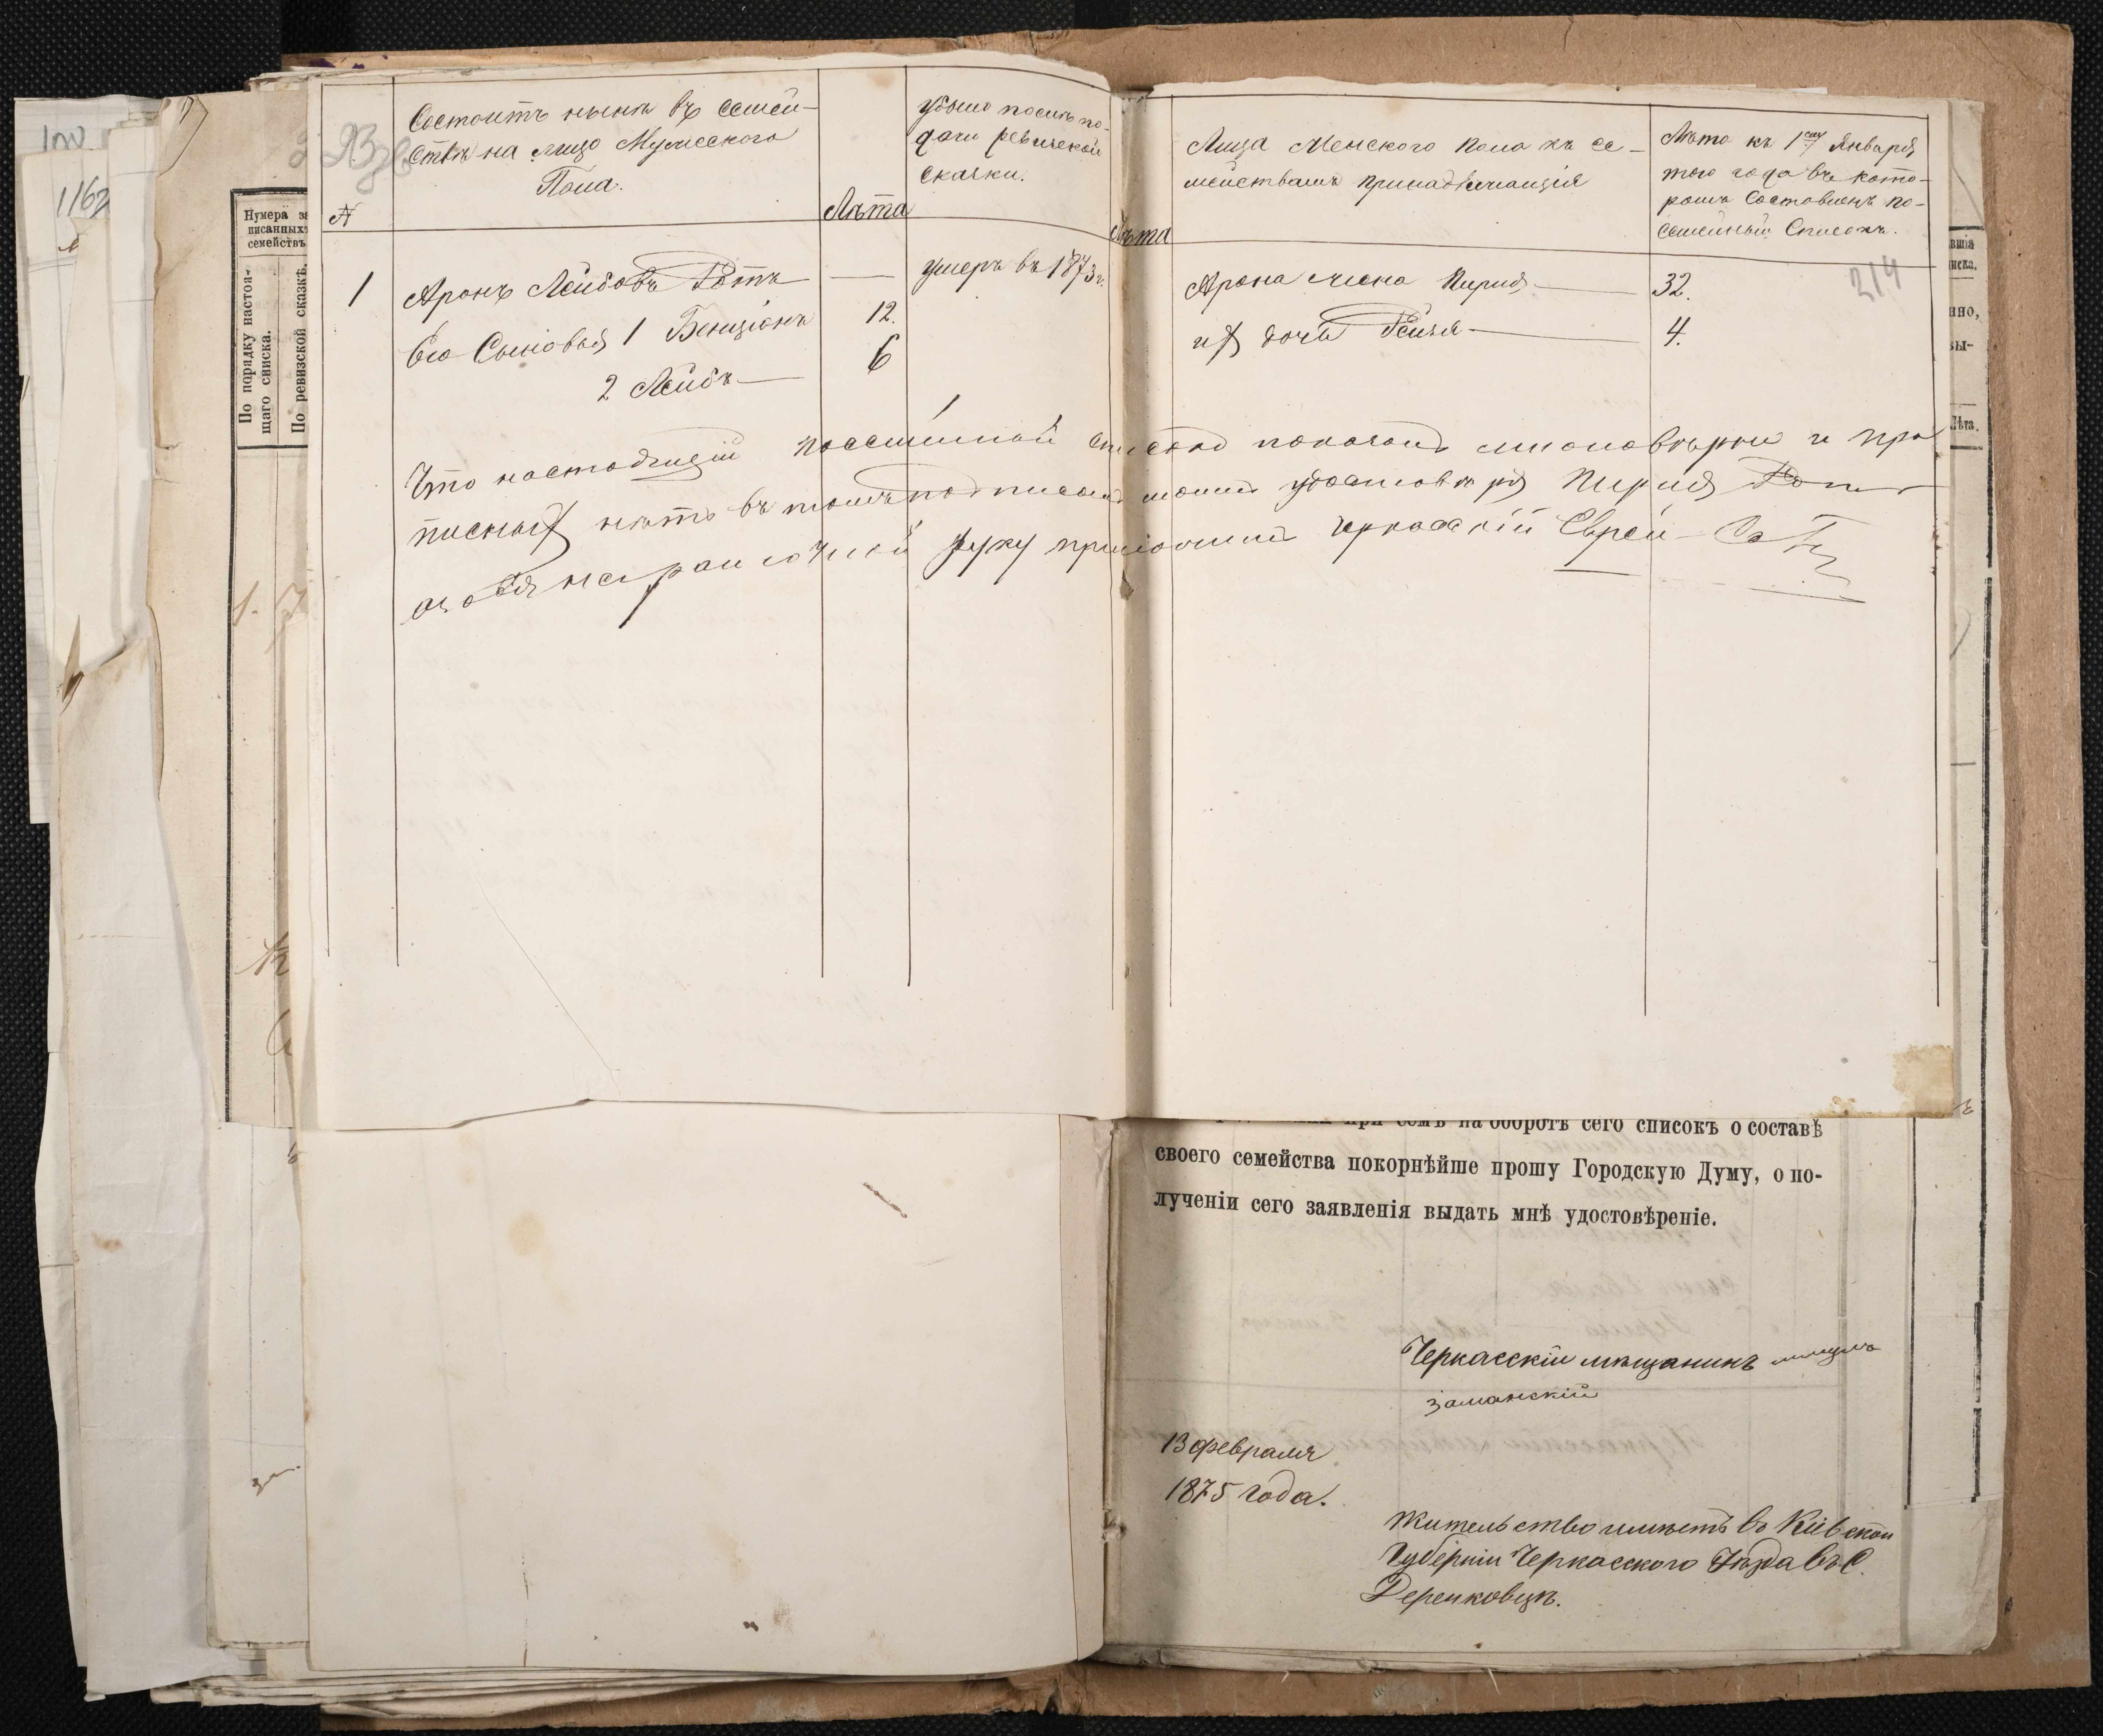 1162
Нумера за
писанныхъ
семействъ
По порядку настоя-
щаго списка.
По ревизской сказкѣ.
№
Состоитъ нынѣ въ семей-
ствѣ на лицо Мужеского
Пола.
Лѣта
убыло послѣ по-
дачи ревизской
сказки.
Лѣта
Лица Женского пола къ се-
мействамъ принадлежащія
Лѣта къ 1му Января
того года въ кото-
ромъ Составленъ по-
семейный Списокъ.
214
1
Аронъ Лейбовъ Ротъ —
умеръ въ 1873 г.
Его Сыновья 1 Бенціонъ
12.
2 Лейбъ —
6
Арона жена Перля —
32.
ихъ дочь Рейзя —
4.
Что настоящій посемейный списокъ показанъ
писныхъ нѣтъ въ томъ подписомъ моимъ удостовѣряю Перля Ротъ
руку приложилъ Черкаскій Еврей
при семъ на оборотѣ сего списокъ о составѣ
своего семейства покорнѣйше прошу Городскую Думу, о по-
лученіи сего заявленія выдать мнѣ удостовѣреніе.
Черкасскій мѣщанинъ
Заманскій
13 февраля
1875 года.
Жительство имѣетъ въ Кіевской
Губерніи Черкасского Уѣзда въ С.
Деренковцѣ.